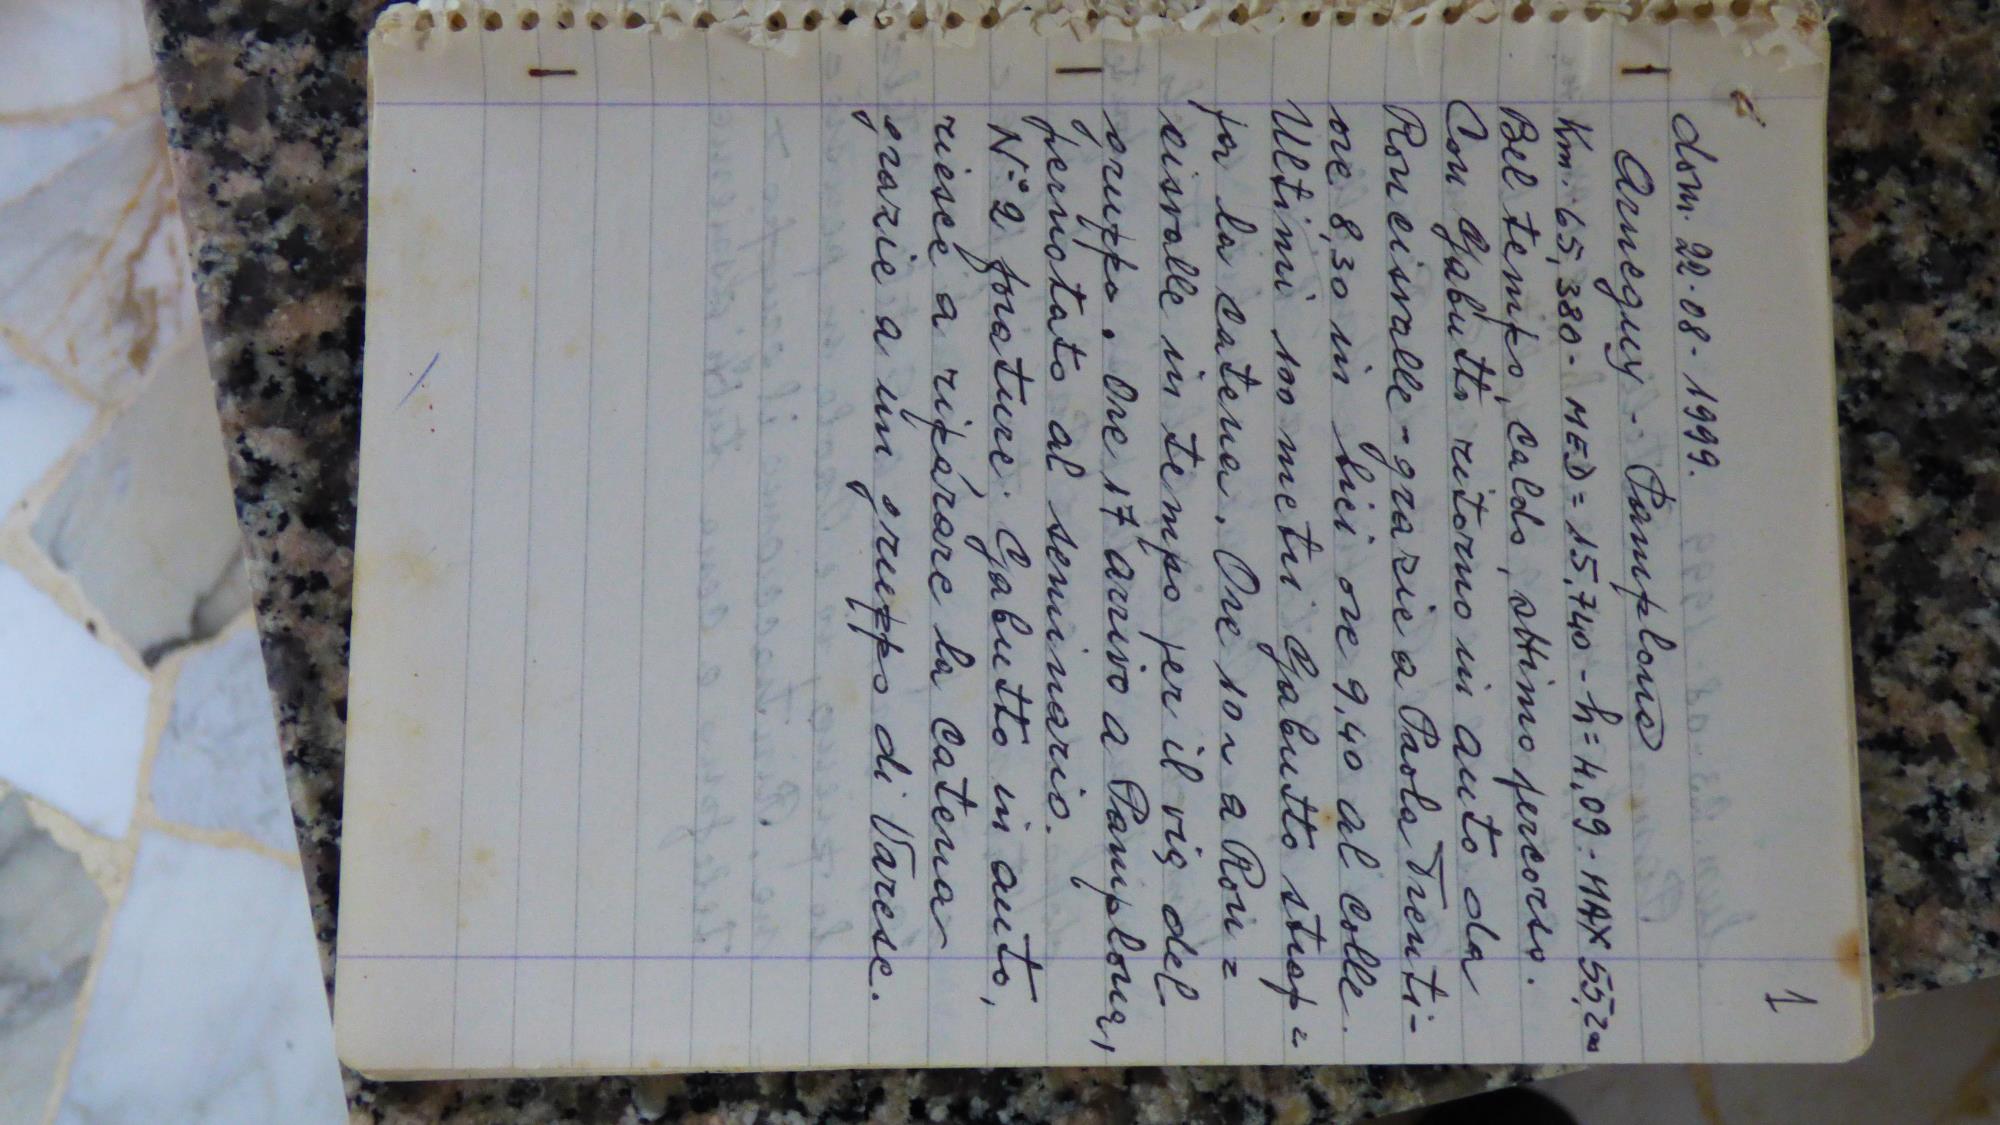 1
dom. 22.08.1999.
Arneguy - Pamplona
Km. 65,380 - MED = 15,740 - h = 4,09 - MAX 55,200
Bel tempo, caldo, ottimo percorso.
Con Gabutto ritorno in auto da
Roncisvalle - grazie a Paola Trenti-
ore 8,30 in bici ore 9,40 al colle.
Ultimi 100 metri Gabutto strap=
pa la catena. Ore 10 a Ron=
cisvalle in tempo per il via del
gruppo. Ore 17 arrivo a Pamplona,
pernotato al seminario.
N° 2 forature. Gabutto in auto,
riesce a riparare la catena
grazie a un gruppo di Varese.